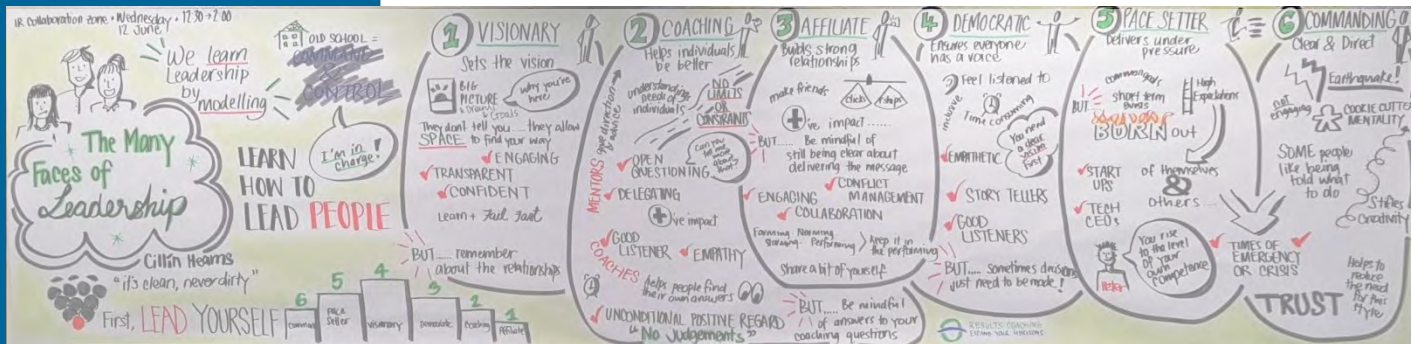 IR COLLABORATION ZONE • WEDNESDAY • 12:30→2:00
12 JUNE
We learn
Leadership
by
modelling
OLD SCHOOL =
COMMAND
&
CONTROL
I'm in
charge!
The Many
Faces of
Leadership
Cillin Hearns
LEARN
HOW TO
LEAD PEOPLE
"it's clean, never dirty"
First, LEAD YOURSELF
6
5
4
3
2
1
command
PACE
SETTER
visionary
Democratic
Coaching
Affiliate
1 VISIONARY
Sets the vision
BIG
PICTURE
& Goals
Why you're
here!
They don't tell you..... they allow
SPACE to find your way
ENGAGING
TRANSPARENT
CONFIDENT
Learn + Fail Fast
BUT..... remember
about the relationships
2 COACHING
Helps individuals
be better
understanding
needs of
individuals
NO
LIMITS
OR
CONSTRAINTS
MENTORS
give direction
& advice
OPEN
QUESTIONING
Can you
tell me
more
about
that?
DELEGATING
+'ve impact
GOOD
LISTENER
EMPATHY
COACHES
helps people find
their own answers
UNCONDITIONAL POSITIVE REGARD
"No Judgements"
BUT..... Be mindful
of answers to your
coaching questions
3 AFFILIATE
Builds strong
relationships
make friends
+'ve impact......
BUT...... Be mindful of
still being clear about
delivering the message
ENGAGING
CONFLICT
MANAGEMENT
COLLABORATION
Forming.. Norming..
Storming.. Performing..
keep it in
the performing
Share a bit of yourself
4 DEMOCRATIC
Ensures everyone
has a voice
Feel listened to
inclusive
Time consuming
You need
a clear
vision
first
EMPATHETIC
STORY TELLERS
GOOD
LISTENERS
BUT..... sometimes decisions
just need to be made!
RESULTS COACHING
5 PACE SETTER
Delivers under
pressure
common goals
short term
bursts
High
Expectations
BUT
BURN out
of themselves
&
others....
START
UPS
TECH
CEOs
You rise
to the level
of your
own
competence
Peter
6 COMMANDING
Clear & Direct
Earthquake!
not
engaging
COOKIE CUTTER
MENTALITY
SOME people
like being
told what
to do
Stifles
Creativity
TIMES OF
EMERGENCY
OR CRISIS
TRUST
Helps to
reduce
the need
for this
style